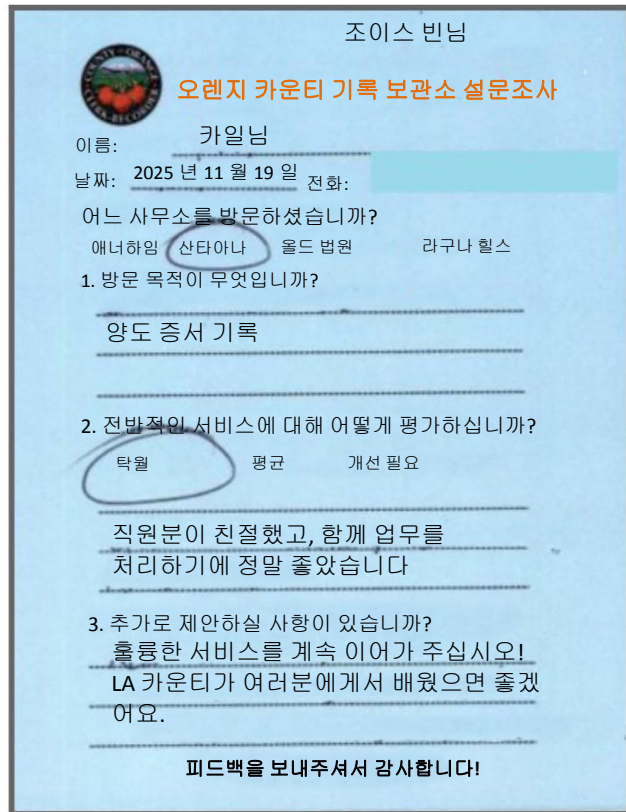 조이스 빈님
COUNTY OF ORANGE
CLERK-RECORDER
오렌지 카운티 기록 보관소 설문조사
이름: 카일님
날짜: 2025 년 11 월 19 일 전화:
어느 사무소를 방문하셨습니까?
애너하임 산타아나 올드 법원 라구나 힐스
1. 방문 목적이 무엇입니까?
양도 증서 기록
2. 전반적인 서비스에 대해 어떻게 평가하십니까?
탁월 평균 개선 필요
직원분이 친절했고, 함께 업무를
처리하기에 정말 좋았습니다
3. 추가로 제안하실 사항이 있습니까?
훌륭한 서비스를 계속 이어가 주십시오!
LA 카운티가 여러분에게서 배웠으면 좋겠
어요.
피드백을 보내주셔서 감사합니다!